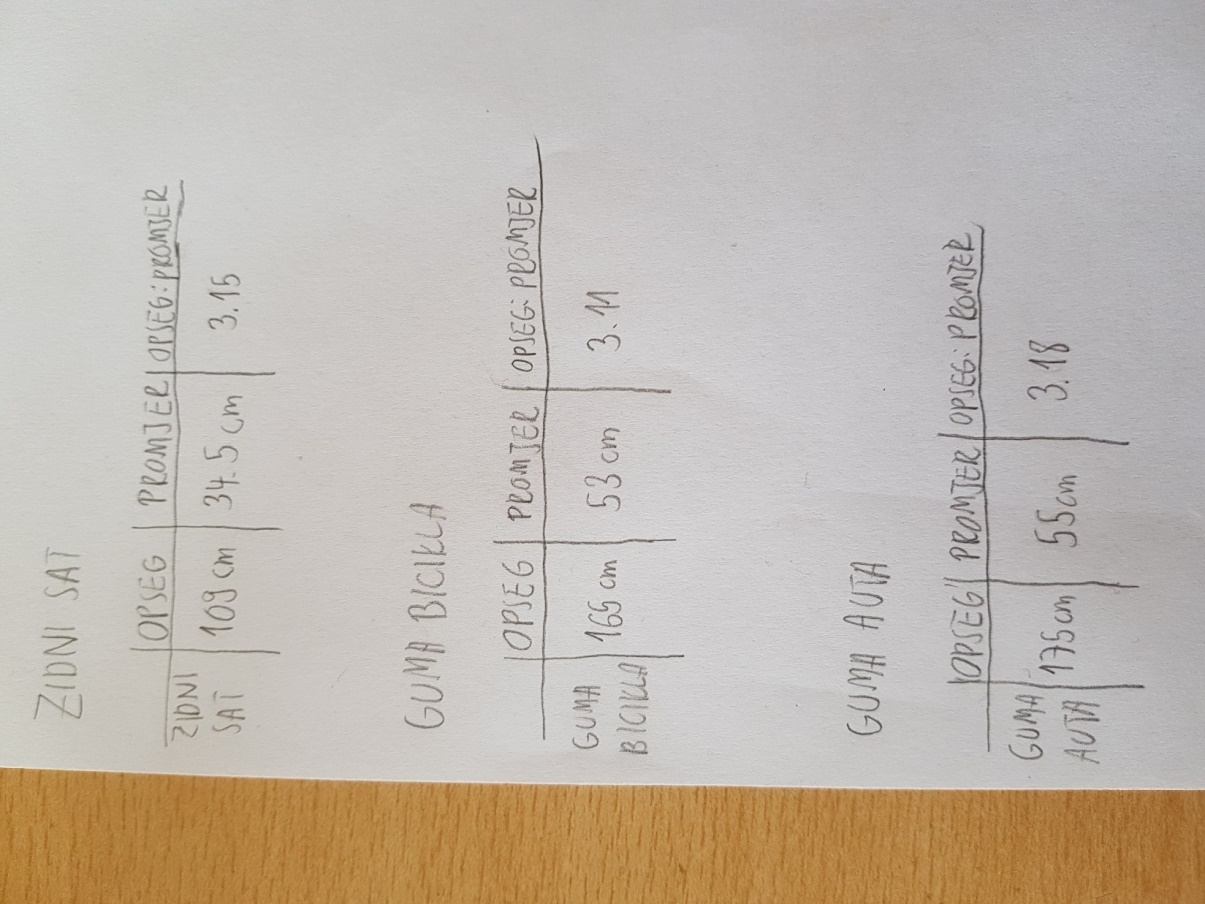 ZIDNI SAT
OPSEG PROMJER OPSEG:PROMJER
ZIDNI SAT 109 cm 34.5 cm 3.15
GUMA BICIKLA
OPSEG PROMJER OPSEG:PROMJER
GUMA BICIKLA 165 cm 53 cm 3.11
GUMA AUTA
OPSEG PROMJER OPSEG:PROMJER
GUMA AUTA 175cm 55cm 3.18